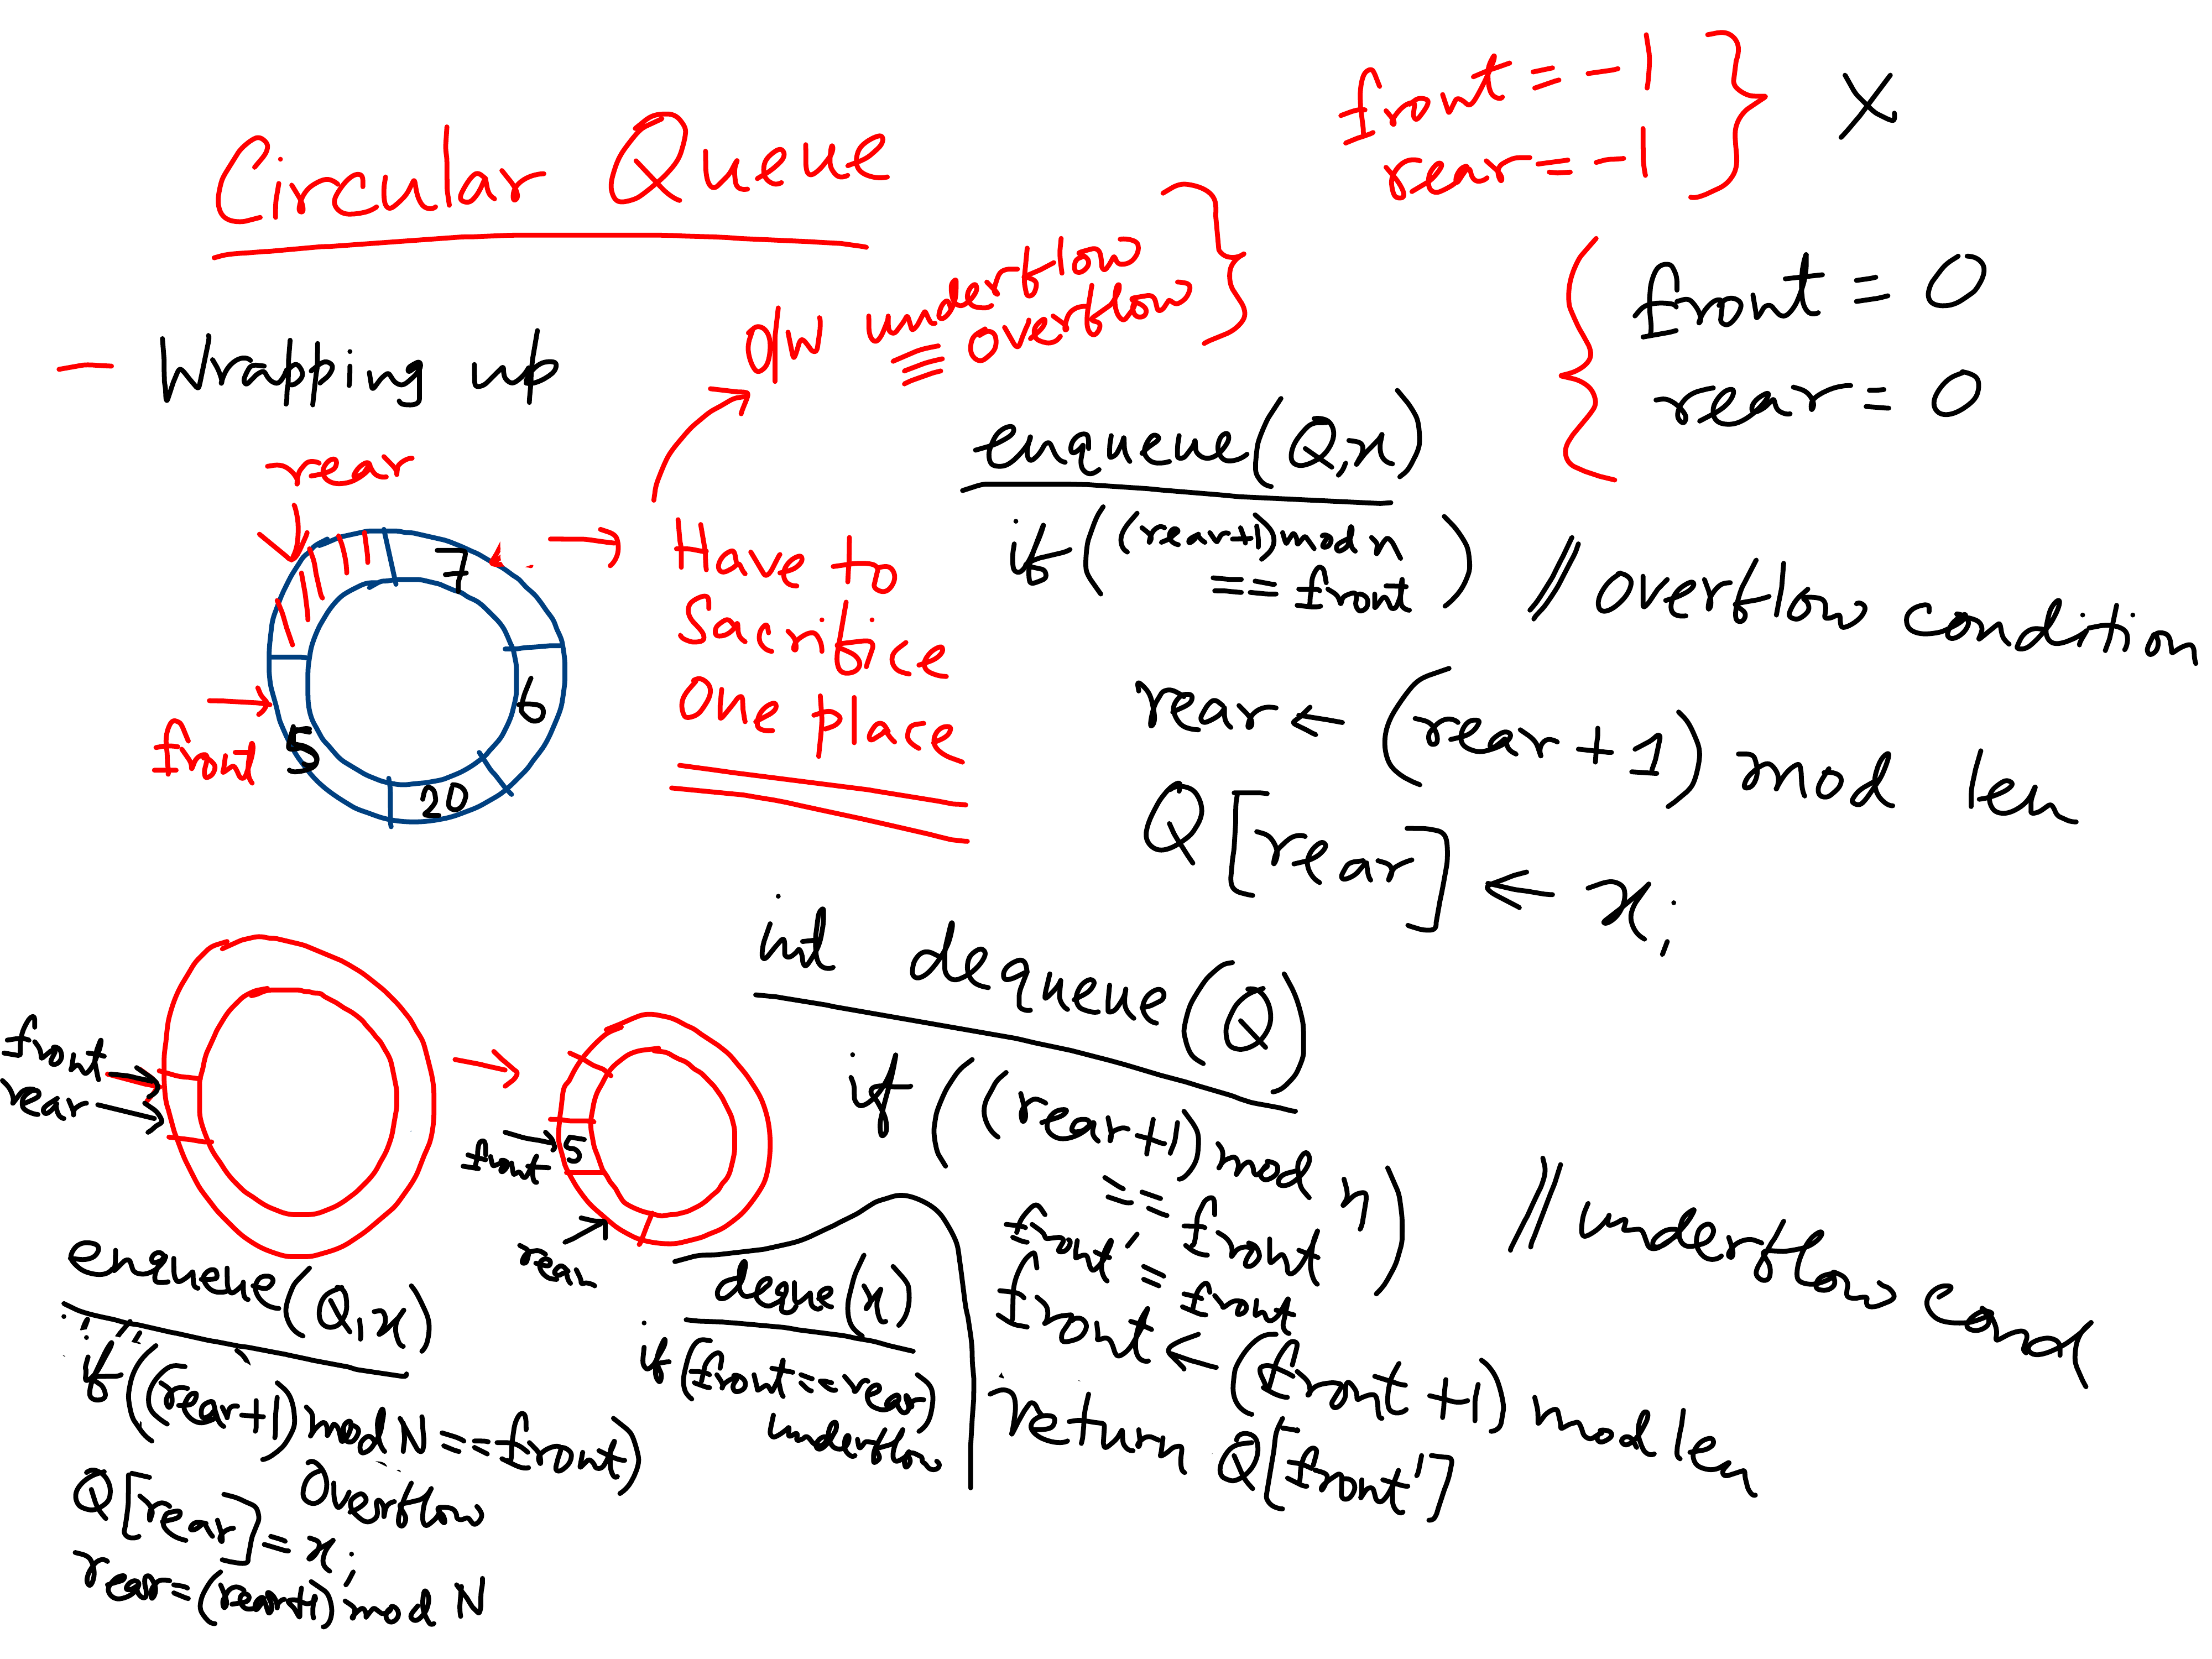 Circular Queue
front = -1
rear = -1
X
O/W underflow
overflow
front = 0
rear = 0
- Wrapping up
rear
7
6
20
5
front
Have to
Sacrifice
one place
enqueue(Q,x)
if ((rear+1) mod n
== front )
// overflow condition
rear ← (rear + 1) mod len
Q[rear] ← x;
int dequeue(Q)
if ((rear+1) mod n
== front )
// underflow cond
front' = front
front ← (front +1) mod len
return Q[front']
front
rear
front
5
rear
enqueue(Q,x)
if ((rear+1) mod N == front)
Overflow
Q[rear] = x;
rear = (rear+1) mod N
deque(x)
if (front == rear)
underflow